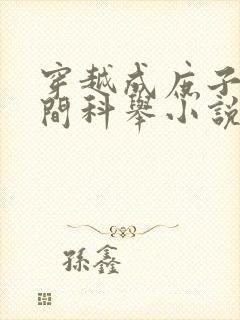 穿越成庶子
間科舉小說
孫鑫